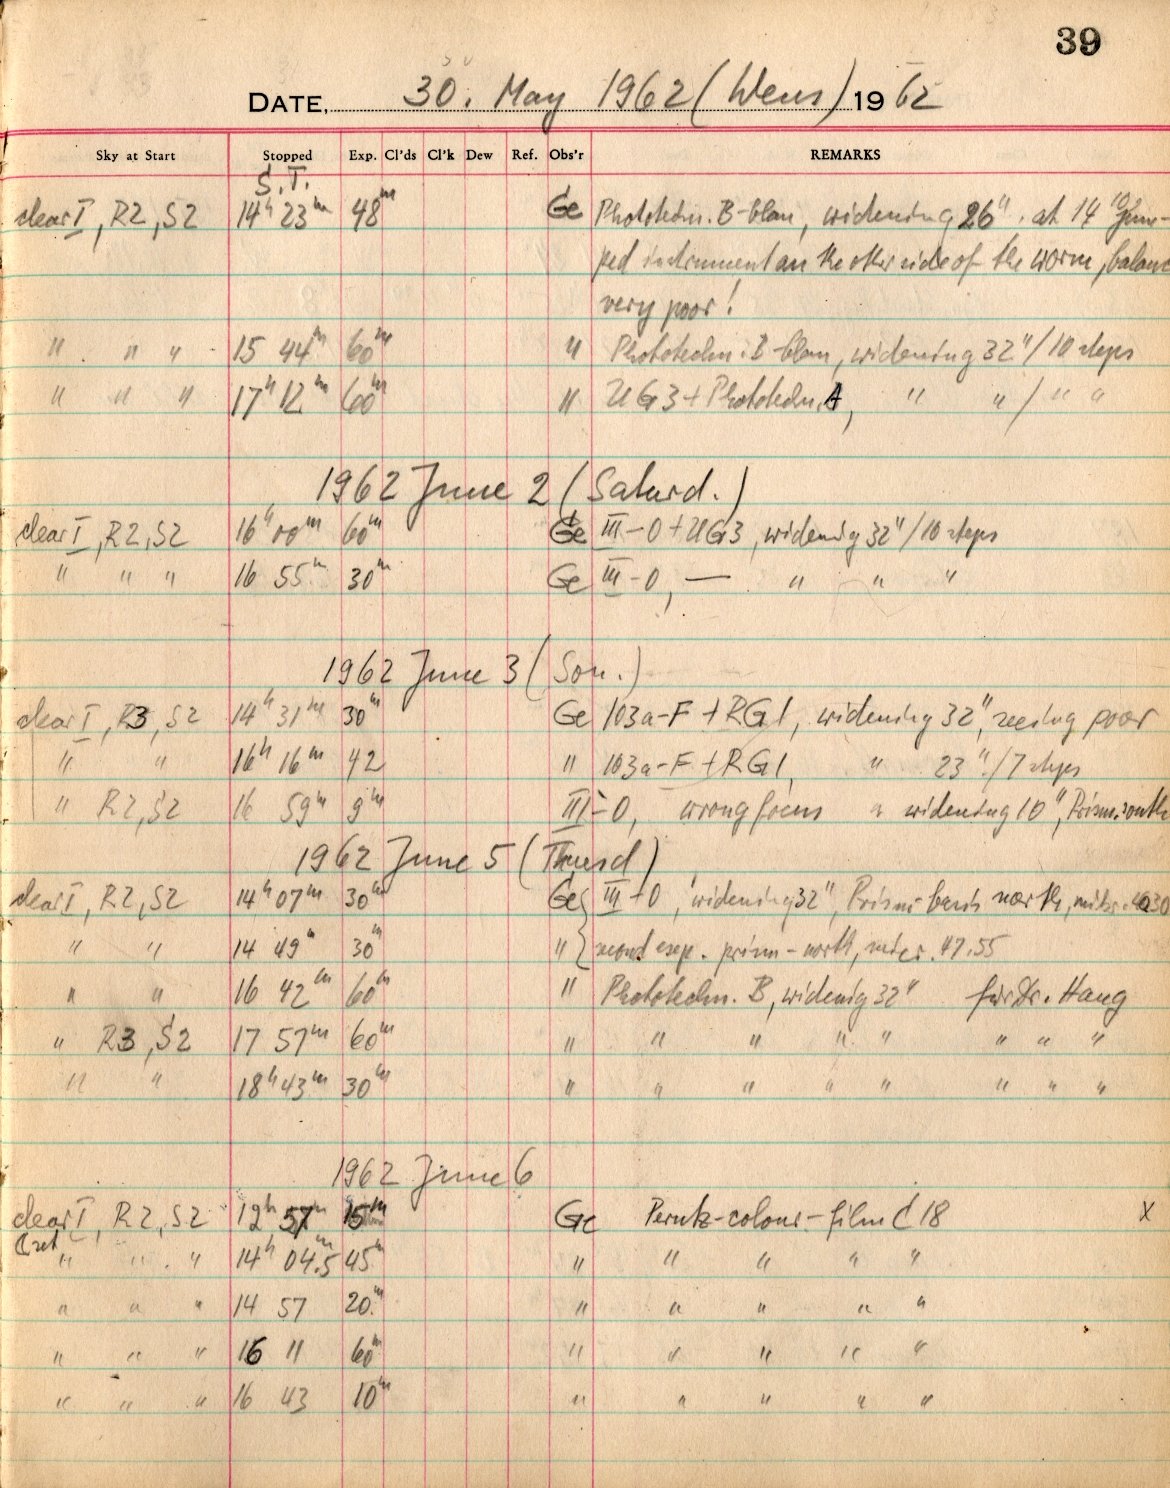 39
DATE, 30. May 1962 (Wens) 19 62
Sky at Start Stopped Exp. Cl'ds Cl'k Dew Ref. Obs'r REMARKS
S.T.
clear I, R2, S2 14h 23m 48m Ge Phototechn. B-blau, widening 26". at 14h jum-
ped instrument on the other side of the worm, balanc
very poor!
" " " 15 44m 60m " Phototechn. B-blau, widening 32"/10 steps
" " " 17h 12m 60m " UG3 + Phototechn. A, " " / " "
1962 June 2 (Saturd.)
clear I, R2, S2 16h 00m 60m Ge III-O + UG3, widening 32"/10 steps
" " " 16 55m 30m Ge III-O, — " " "
1962 June 3 (Son.)
clear I, R3, S2 14h 31m 30m Ge 103a-F + RG1, widening 32", seeing poor
" " 16h 16m 42 " 103a-F + RG1, " 23"/7 steps
" R2, S2 16 59m 9m III-O, wrong focus " widening 10", Prism. south
1962 June 5 (Thuesd)
clear I, R2, S2 14h 07m 30m Ge III-O, widening 32", Prism-basis north,
" " 14 49m 30m " second exp. prism-north, micr. 47.55
" " 16 42m 60m " Phototechn. B, widenig 32" für Dr. Haug
" R3, S2 17 57m 60m " " " " " " " "
" " 18h 43m 30m " " " " " " " "
1962 June 6
clear I, R2, S2 12h 57m 15m Ge Perutz-colour-film C18 X
" " " 14h 04.5m 45m " " " " "
" " " 14 57 20m " " " " "
" " " 16 11 60m " " " " "
" " " 16 43 10m " " " " "